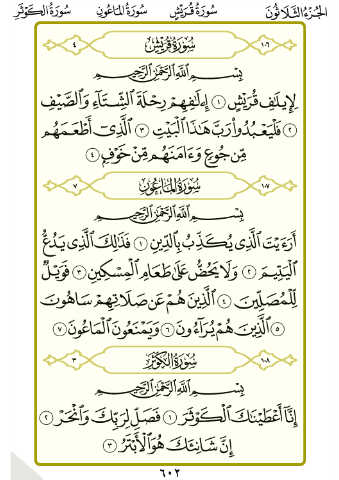 الجزء الثلاثون سورة قريش سورة الماعون سورة الكوثر
١٠٦ سورة قريش ٤
بسم الله الرحمن الرحيم
لِإِيلَٰفِ قُرَيْشٍ ١ إِۦلَٰفِهِمْ رِحْلَةَ ٱلشِّتَآءِ وَٱلصَّيْفِ
٢ فَلْيَعْبُدُوا۟ رَبَّ هَٰذَا ٱلْبَيْتِ ٣ ٱلَّذِىٓ أَطْعَمَهُم
مِّن جُوعٍ وَءَامَنَهُم مِّنْ خَوْفٍۭ ٤
١٠٧ سورة الماعون ٧
بسم الله الرحمن الرحيم
أَرَءَيْتَ ٱلَّذِى يُكَذِّبُ بِٱلدِّينِ ١ فَذَٰلِكَ ٱلَّذِى يَدُعُّ
ٱلْيَتِيمَ ٢ وَلَا يَحُضُّ عَلَىٰ طَعَامِ ٱلْمِسْكِينِ ٣ فَوَيْلٌ
لِّلْمُصَلِّينَ ٤ ٱلَّذِينَ هُمْ عَن صَلَاتِهِمْ سَاهُونَ
٥ ٱلَّذِينَ هُمْ يُرَآءُونَ ٦ وَيَمْنَعُونَ ٱلْمَاعُونَ ٧
١٠٨ سورة الكوثر ٣
بسم الله الرحمن الرحيم
إِنَّآ أَعْطَيْنَٰكَ ٱلْكَوْثَرَ ١ فَصَلِّ لِرَبِّكَ وَٱنْحَرْ ٢
إِنَّ شَانِئَكَ هُوَ ٱلْأَبْتَرُ ٣
٦٠٢